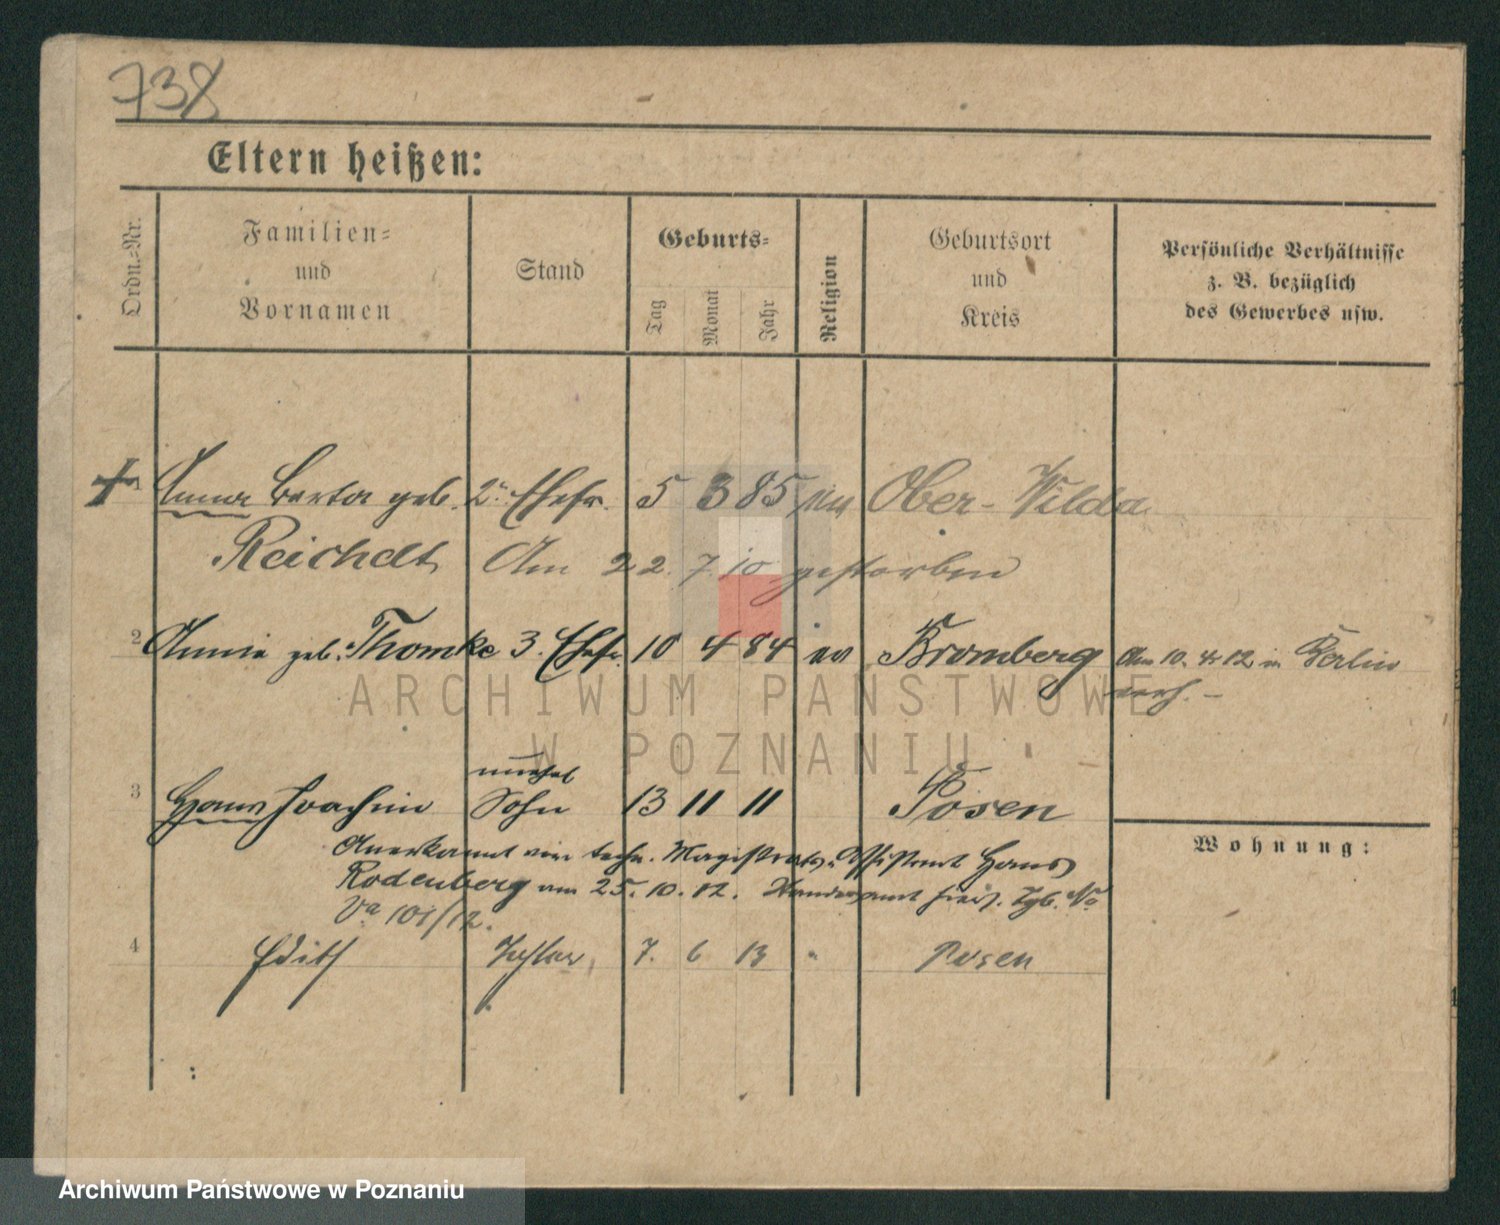 738
Eltern heißen:
Ordn.-Nr.
Familien-
und
Vornamen
Stand
Geburts-
Tag
Monat
Jahr
Religion
Geburtsort
und
Kreis
Persönliche Verhältnisse
z. B. bezüglich
des Gewerbes usw.
1 Anna Berta geb. 2. Ehefr. 5 3 85 Ober-Wilda
Reichelt Am 22. 7. 10 gestorben
2 Annie geb. Thomke 3. Ehefr. 10 4 84 ev Bromberg Am 10. 4. 12 in Berlin
verh. –
unehel
3 Hans Joachim Sohn 13 11 11 Posen
Anerkannt techn. Magistrats-Assistent Hans
Rodenberg am 25. 10. 12. Standesamt hier. Tgb. No
Va 101/12.
4 Edith Tochter 7. 6 13 " Posen
Wohnung:
ARCHIWUM PAŃSTWOWE
W POZNANIU
Archiwum Państwowe w Poznaniu